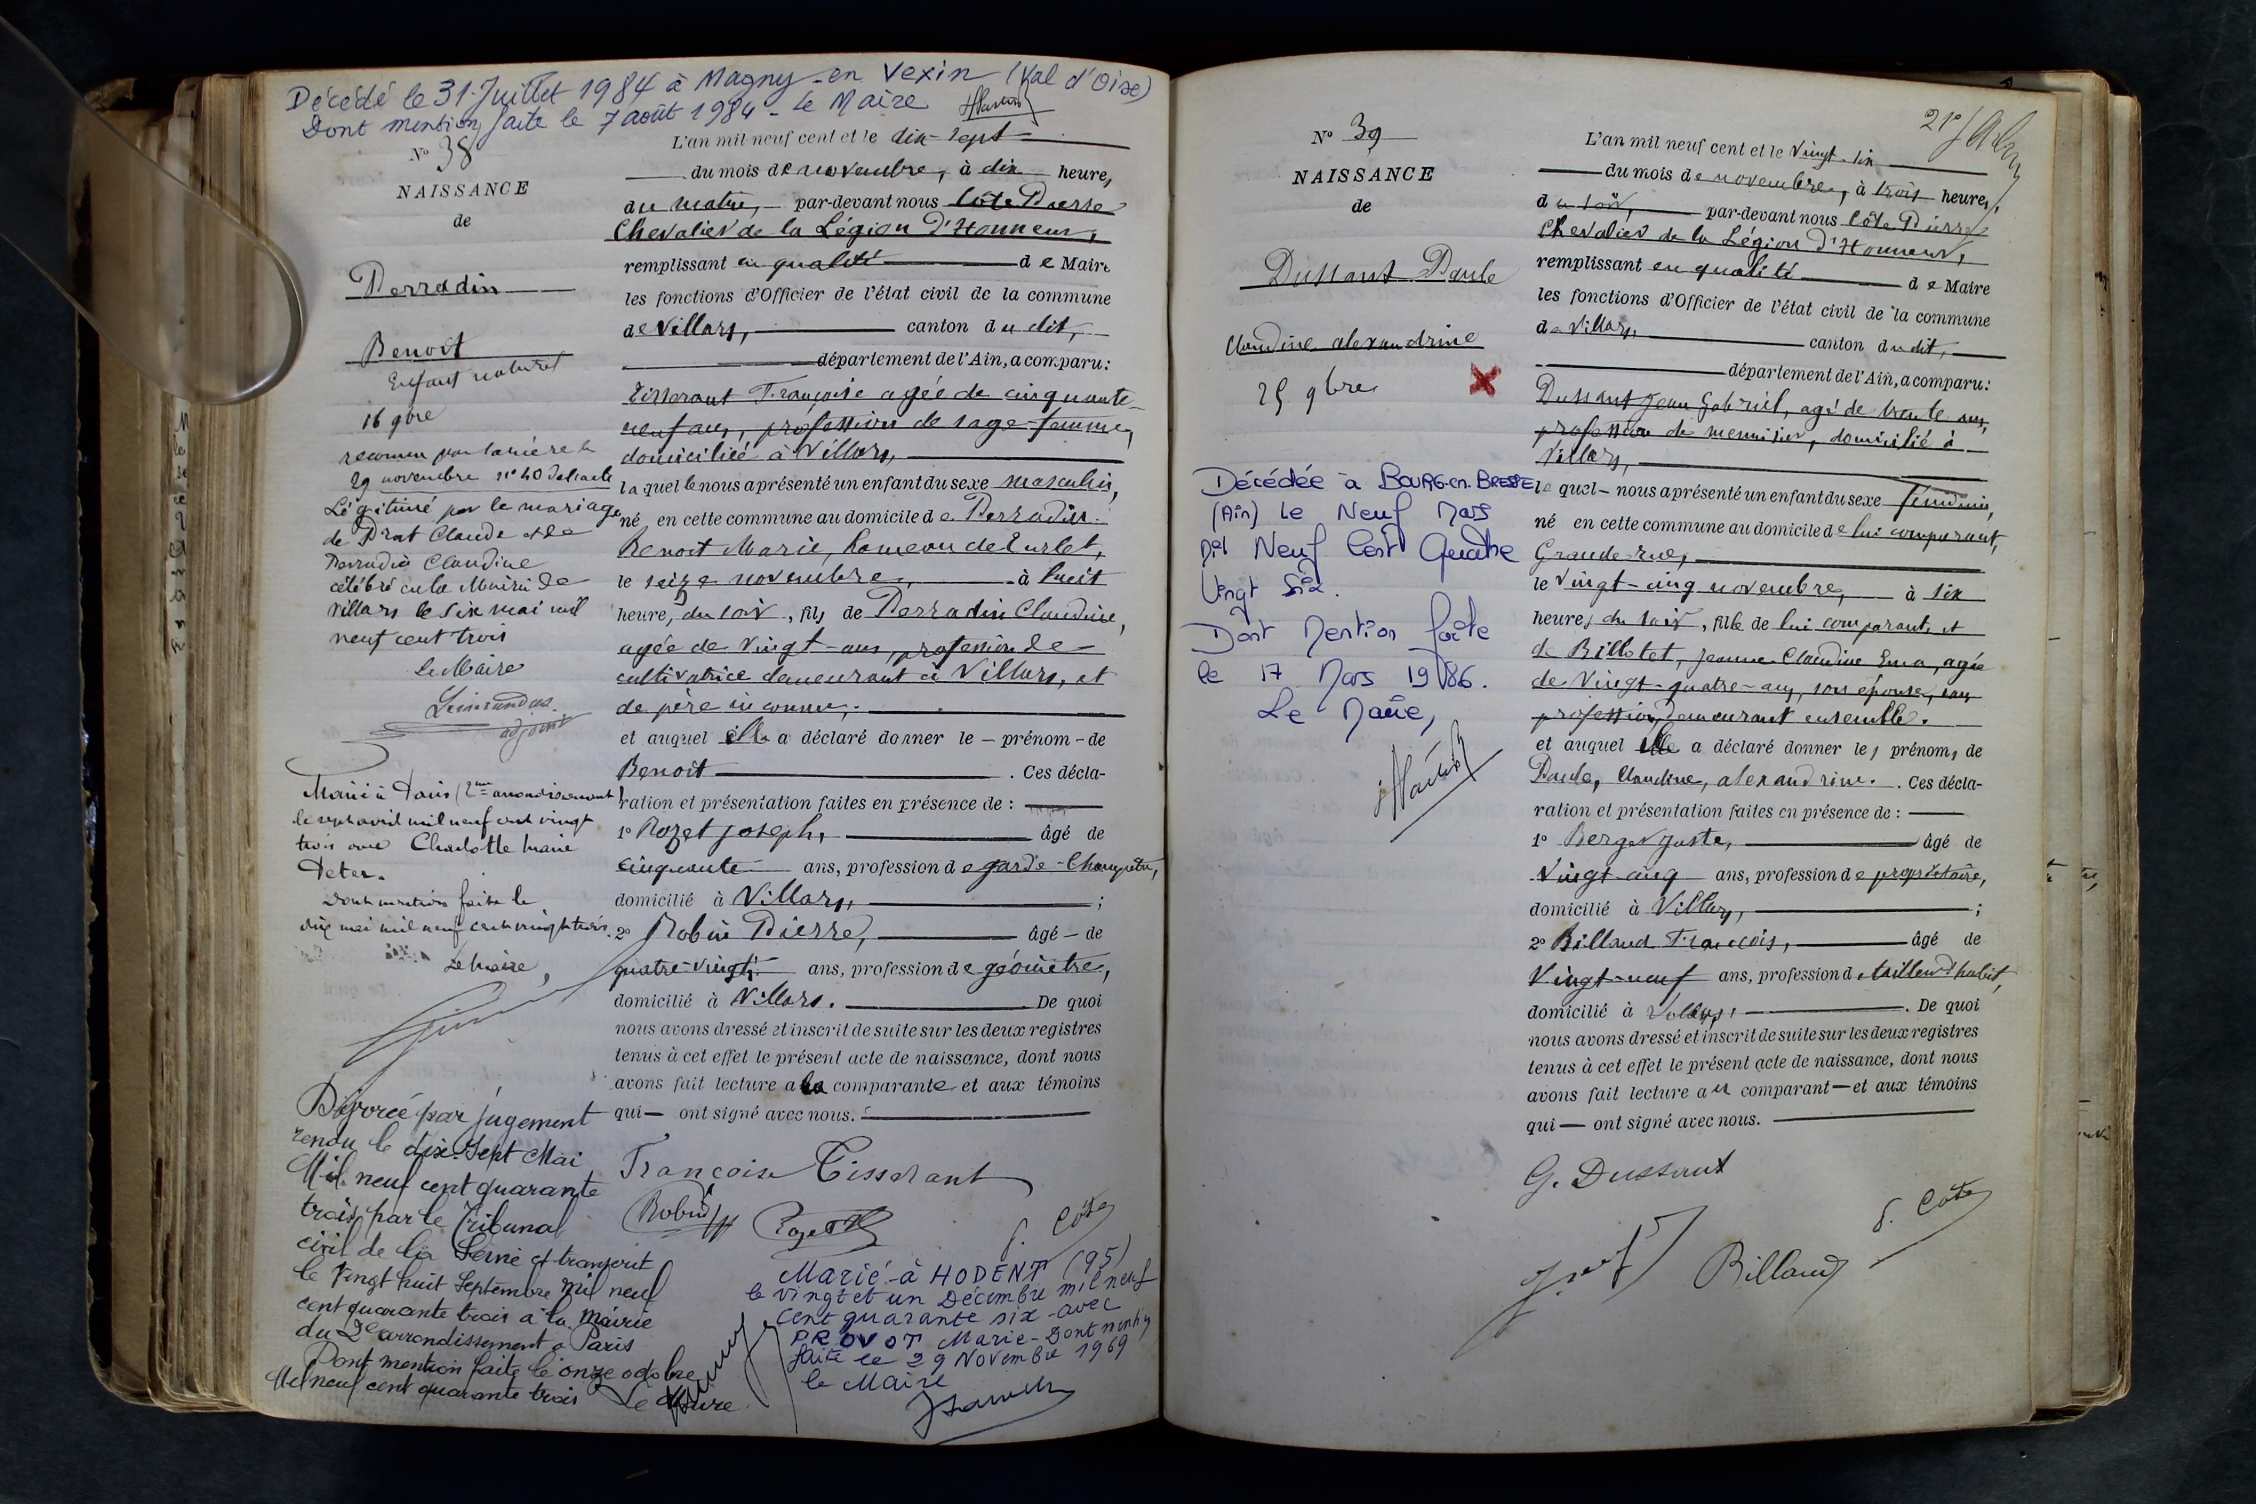 Décédé le 31 Juillet 1984 à Magny-en Vexin (Val d'Oise)
Dont mention faite le 7 août 1984 - Le Maire
N° 38
NAISSANCE
de
Perradin
Benoit
Enfant naturel
16 9bre
reconnu par sa mère le
29 novembre n° 40
Légitimé par le mariage
de Prat Claude et de
Perradin Claudine
célébré en la Mairie de
Villars le six mai mil
neuf cent trois
Le Maire
adjoint
Marié à Paris (2me arrondissement)
le sept avril mil neuf cent vingt
trois avec Charlotte Marie
Peter.
Dont mention faite le
dix mai mil neuf cent vingt trois.
Le Maire,
Divorcé par jugement
rendu le dix-sept Mai
Mil neuf cent quarante
trois par le Tribunal
civil de la Seine et transcrit
le Vingt huit Septembre Mil neuf
cent quarante trois à la mairie
du 2e arrondissement à Paris
Dont mention faite le onze octobre
Mil neuf cent quarante trois Le Maire
L'an mil neuf cent et le dix-sept
du mois de novembre, à dix heure,
du matin, par-devant nous Côte Pierre
Chevalier de la Légion d'Honneur,
remplissant en qualité de Maire
les fonctions d'Officier de l'état civil de la commune
de Villars, canton du dit,
département de l'Ain, a comparu:
Tisserant Françoise agée de cinquante-
neuf ans, profession de sage-femme,
domiciliée à Villars,
laquelle nous a présenté un enfant du sexe masculin,
né en cette commune au domicile de Perradin
Benoit Marie, hameau de Turlet,
le seize novembre, à huit
heure, du soir, fils de Perradin Claudine,
agée de vingt ans, profession de
cultivatrice demeurant à Villars, et
de père inconnu,
et auquel elle a déclaré donner le prénom de
Benoit. Ces décla-
ration et présentation faites en présence de :
1° Rozet Joseph, âgé de
cinquante ans, profession de garde-Champêtre,
domicilié à Villars, ;
2° Robin Pierre, âgé de
quatre-vingt ans, profession de géomètre,
domicilié à Villars. De quoi
nous avons dressé et inscrit de suite sur les deux registres
tenus à cet effet le présent acte de naissance, dont nous
avons fait lecture a la comparante et aux témoins
qui ont signé avec nous.
Françoise Tisserant
Robin Rozet P. Côte
Marié à HODENT (95)
le vingt et un Décembre mil neuf
cent quarante six avec
PROVOT Marie - Dont mention
faite le 29 Novembre 1969
le Maire
N° 39
NAISSANCE
de
Dussaut Paule
Claudine alexandrine
25 9bre
Décédée à BOURG-en-BRESSE
(Ain) le Neuf Mars
Mil Neuf Cent Quatre
Vingt Six.
Dont Mention faite
le 17 Mars 1986.
Le Maire,
21e
L'an mil neuf cent et le vingt-six
du mois de novembre, à trois heure,
du soir, par-devant nous Côte Pierre
Chevalier de la Légion d'Honneur,
remplissant en qualité de Maire
les fonctions d'Officier de l'état civil de la commune
de Villars, canton du dit,
département de l'Ain, a comparu:
Dussaut Jean Gabriel, agé de trente ans,
profession de menuisier, domicilié à
Villars,
lequel nous a présenté un enfant du sexe féminin,
né en cette commune au domicile de lui comparant,
Grande-rue,
le vingt-cinq novembre, à six
heure, du soir, fille de lui comparant, et
de Billotet, Jeanne Claudine Ema, agée
de Vingt-quatre ans, son épouse, sans
profession, demeurant ensemble.
et auquel elle a déclaré donner les prénoms de
Paule, Claudine, alexandrine. Ces décla-
ration et présentation faites en présence de :
1° Berger Juste, âgé de
Vingt-cinq ans, profession de propriétaire,
domicilié à Villars, ;
2° Billaud François, âgé de
Vingt-neuf ans, profession de tailleur d'habit,
domicilié à Villars, . De quoi
nous avons dressé et inscrit de suite sur les deux registres
tenus à cet effet le présent acte de naissance, dont nous
avons fait lecture au comparant et aux témoins
qui ont signé avec nous.
G. Dussaut
P. Côte
Billaud